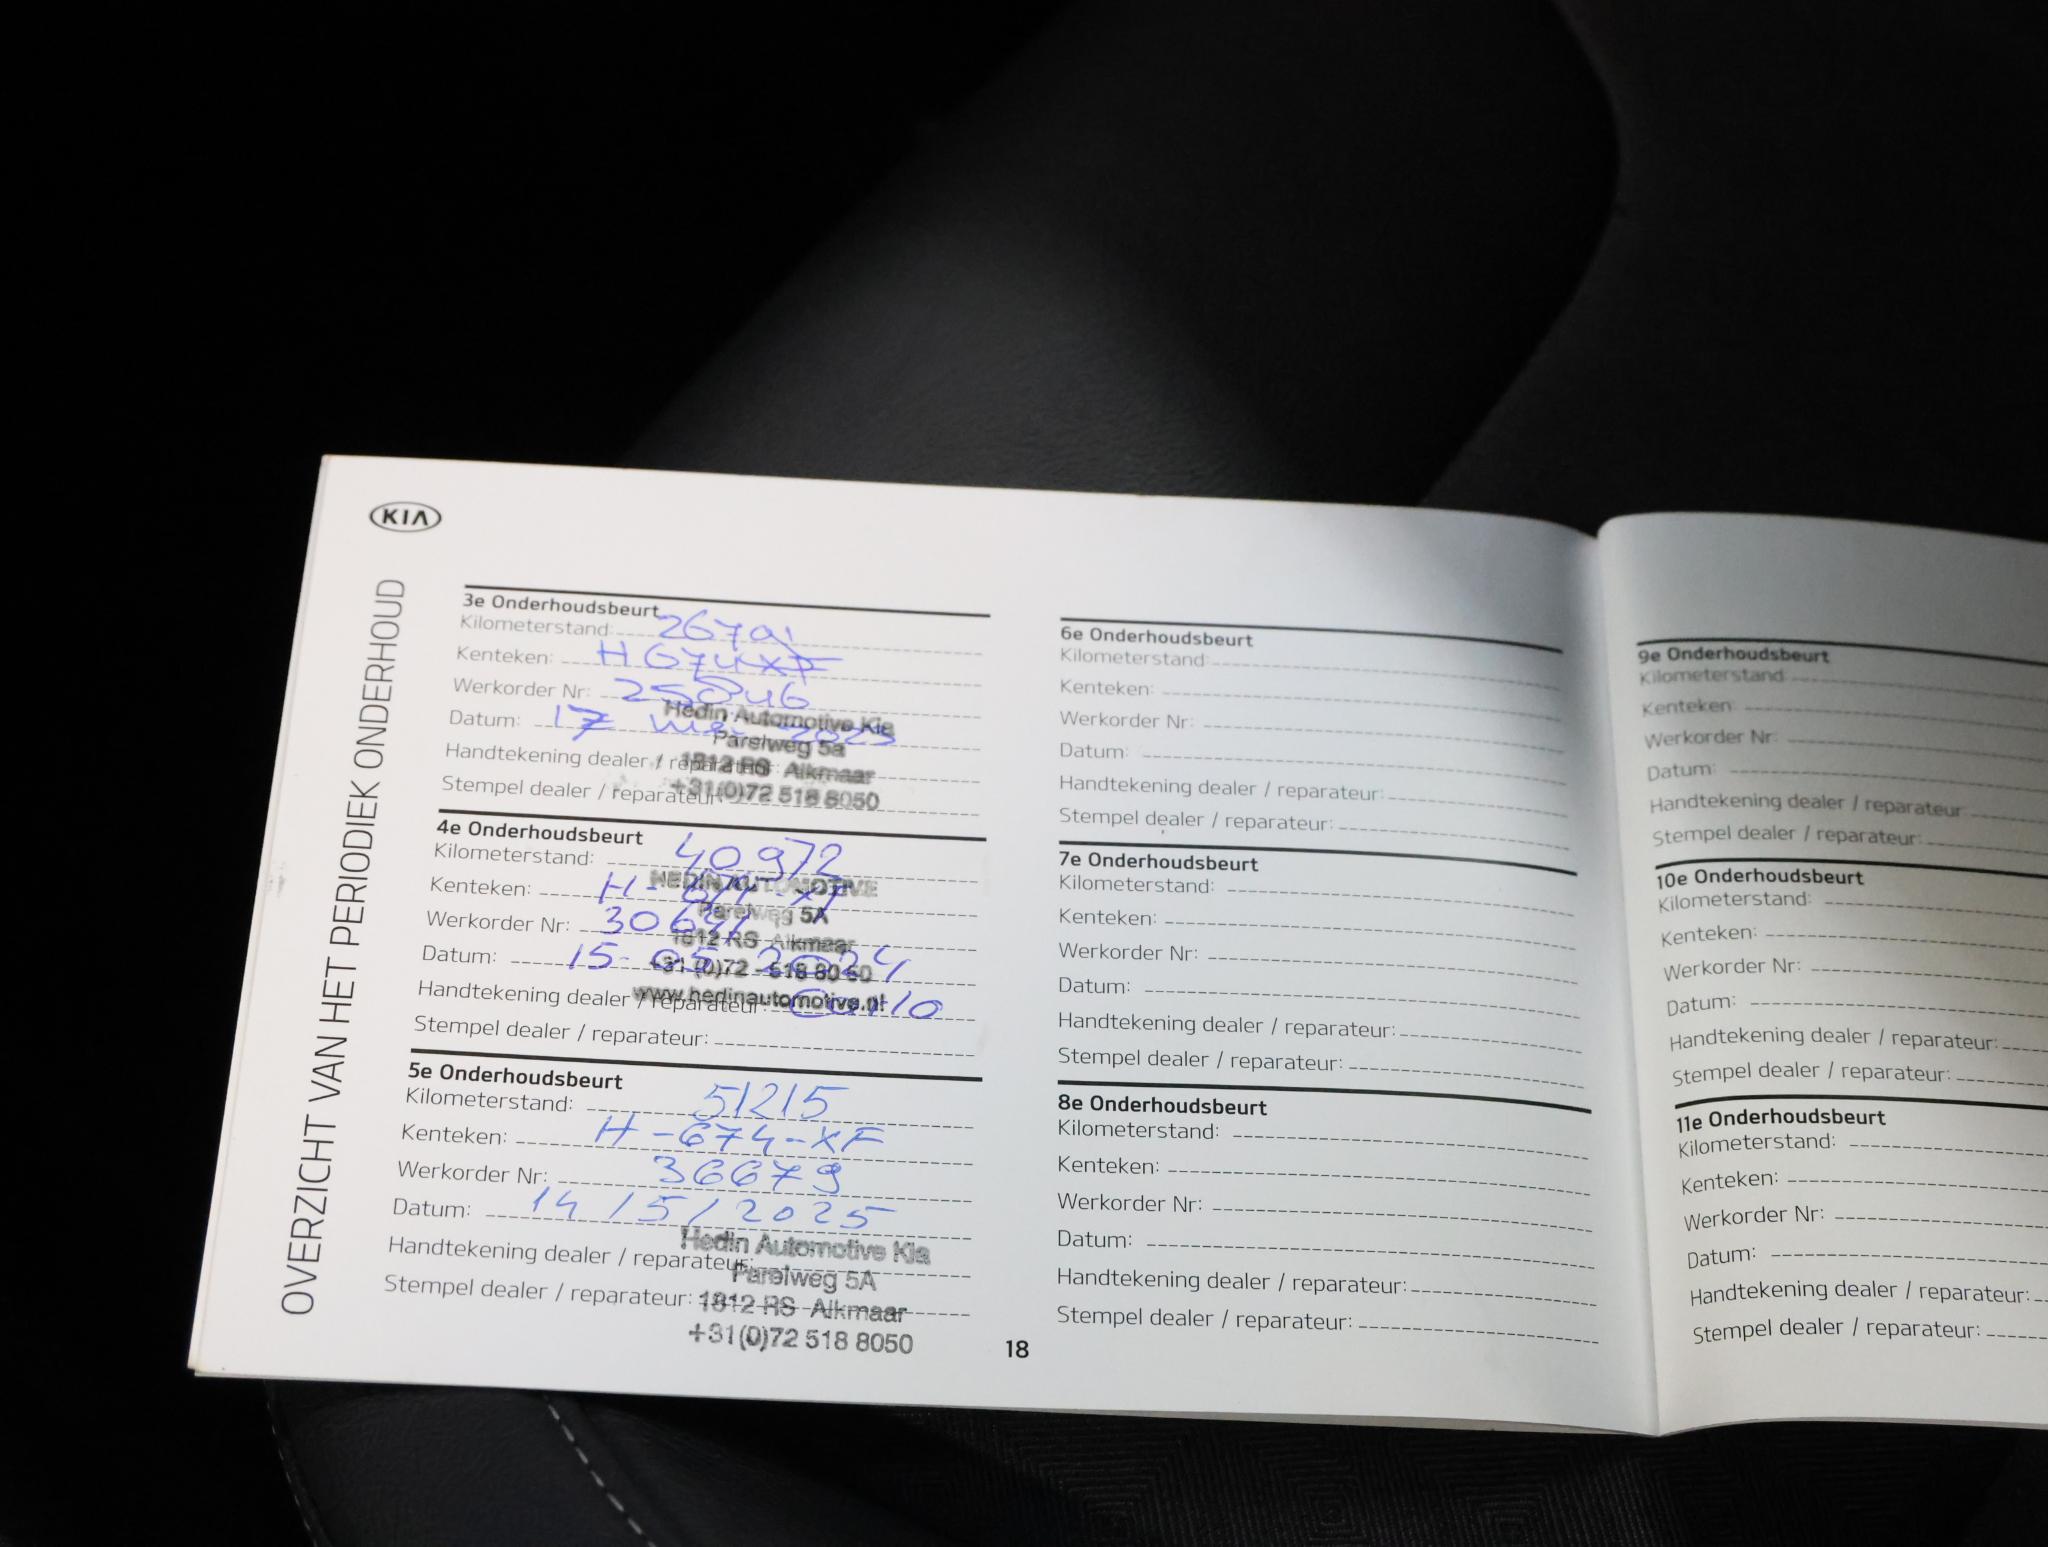 KIA
OVERZICHT VAN HET PERIODIEK ONDERHOUD
3e Onderhoudsbeurt
Kilometerstand: 26791
Kenteken: H674XF
Werkorder Nr: 25846
Datum: 17 2023
Handtekening dealer / reparateur:
Stempel dealer / reparateur:
Hedin Automotive Kia
Parelweg 5a
1812 RS Alkmaar
+31(0)72 518 8050
4e Onderhoudsbeurt
Kilometerstand: 40972
Kenteken: H-674-XF
Werkorder Nr:
Datum: 15-05-2024
Handtekening dealer / reparateur:
Stempel dealer / reparateur:
HEDIN AUTOMOTIVE
Parelweg 5A
1812 RS Alkmaar
+31 (0)72 - 518 80 50
www.hedinautomotive.nl
5e Onderhoudsbeurt
Kilometerstand: 51215
Kenteken: H-674-XF
Werkorder Nr: 36679
Datum: 14/5/2025
Handtekening dealer / reparateur:
Stempel dealer / reparateur:
Hedin Automotive Kia
Parelweg 5A
1812 RS Alkmaar
+31(0)72 518 8050
18
6e Onderhoudsbeurt
Kilometerstand:
Kenteken:
Werkorder Nr:
Datum:
Handtekening dealer / reparateur:
Stempel dealer / reparateur:
7e Onderhoudsbeurt
Kilometerstand:
Kenteken:
Werkorder Nr:
Datum:
Handtekening dealer / reparateur:
Stempel dealer / reparateur:
8e Onderhoudsbeurt
Kilometerstand:
Kenteken:
Werkorder Nr:
Datum:
Handtekening dealer / reparateur:
Stempel dealer / reparateur:
9e Onderhoudsbeurt
Kilometerstand:
Kenteken:
Werkorder Nr:
Datum:
Handtekening dealer / reparateur:
Stempel dealer / reparateur:
10e Onderhoudsbeurt
Kilometerstand:
Kenteken:
Werkorder Nr:
Datum:
Handtekening dealer / reparateur:
Stempel dealer / reparateur:
11e Onderhoudsbeurt
Kilometerstand:
Kenteken:
Werkorder Nr:
Datum:
Handtekening dealer / reparateur:
Stempel dealer / reparateur: